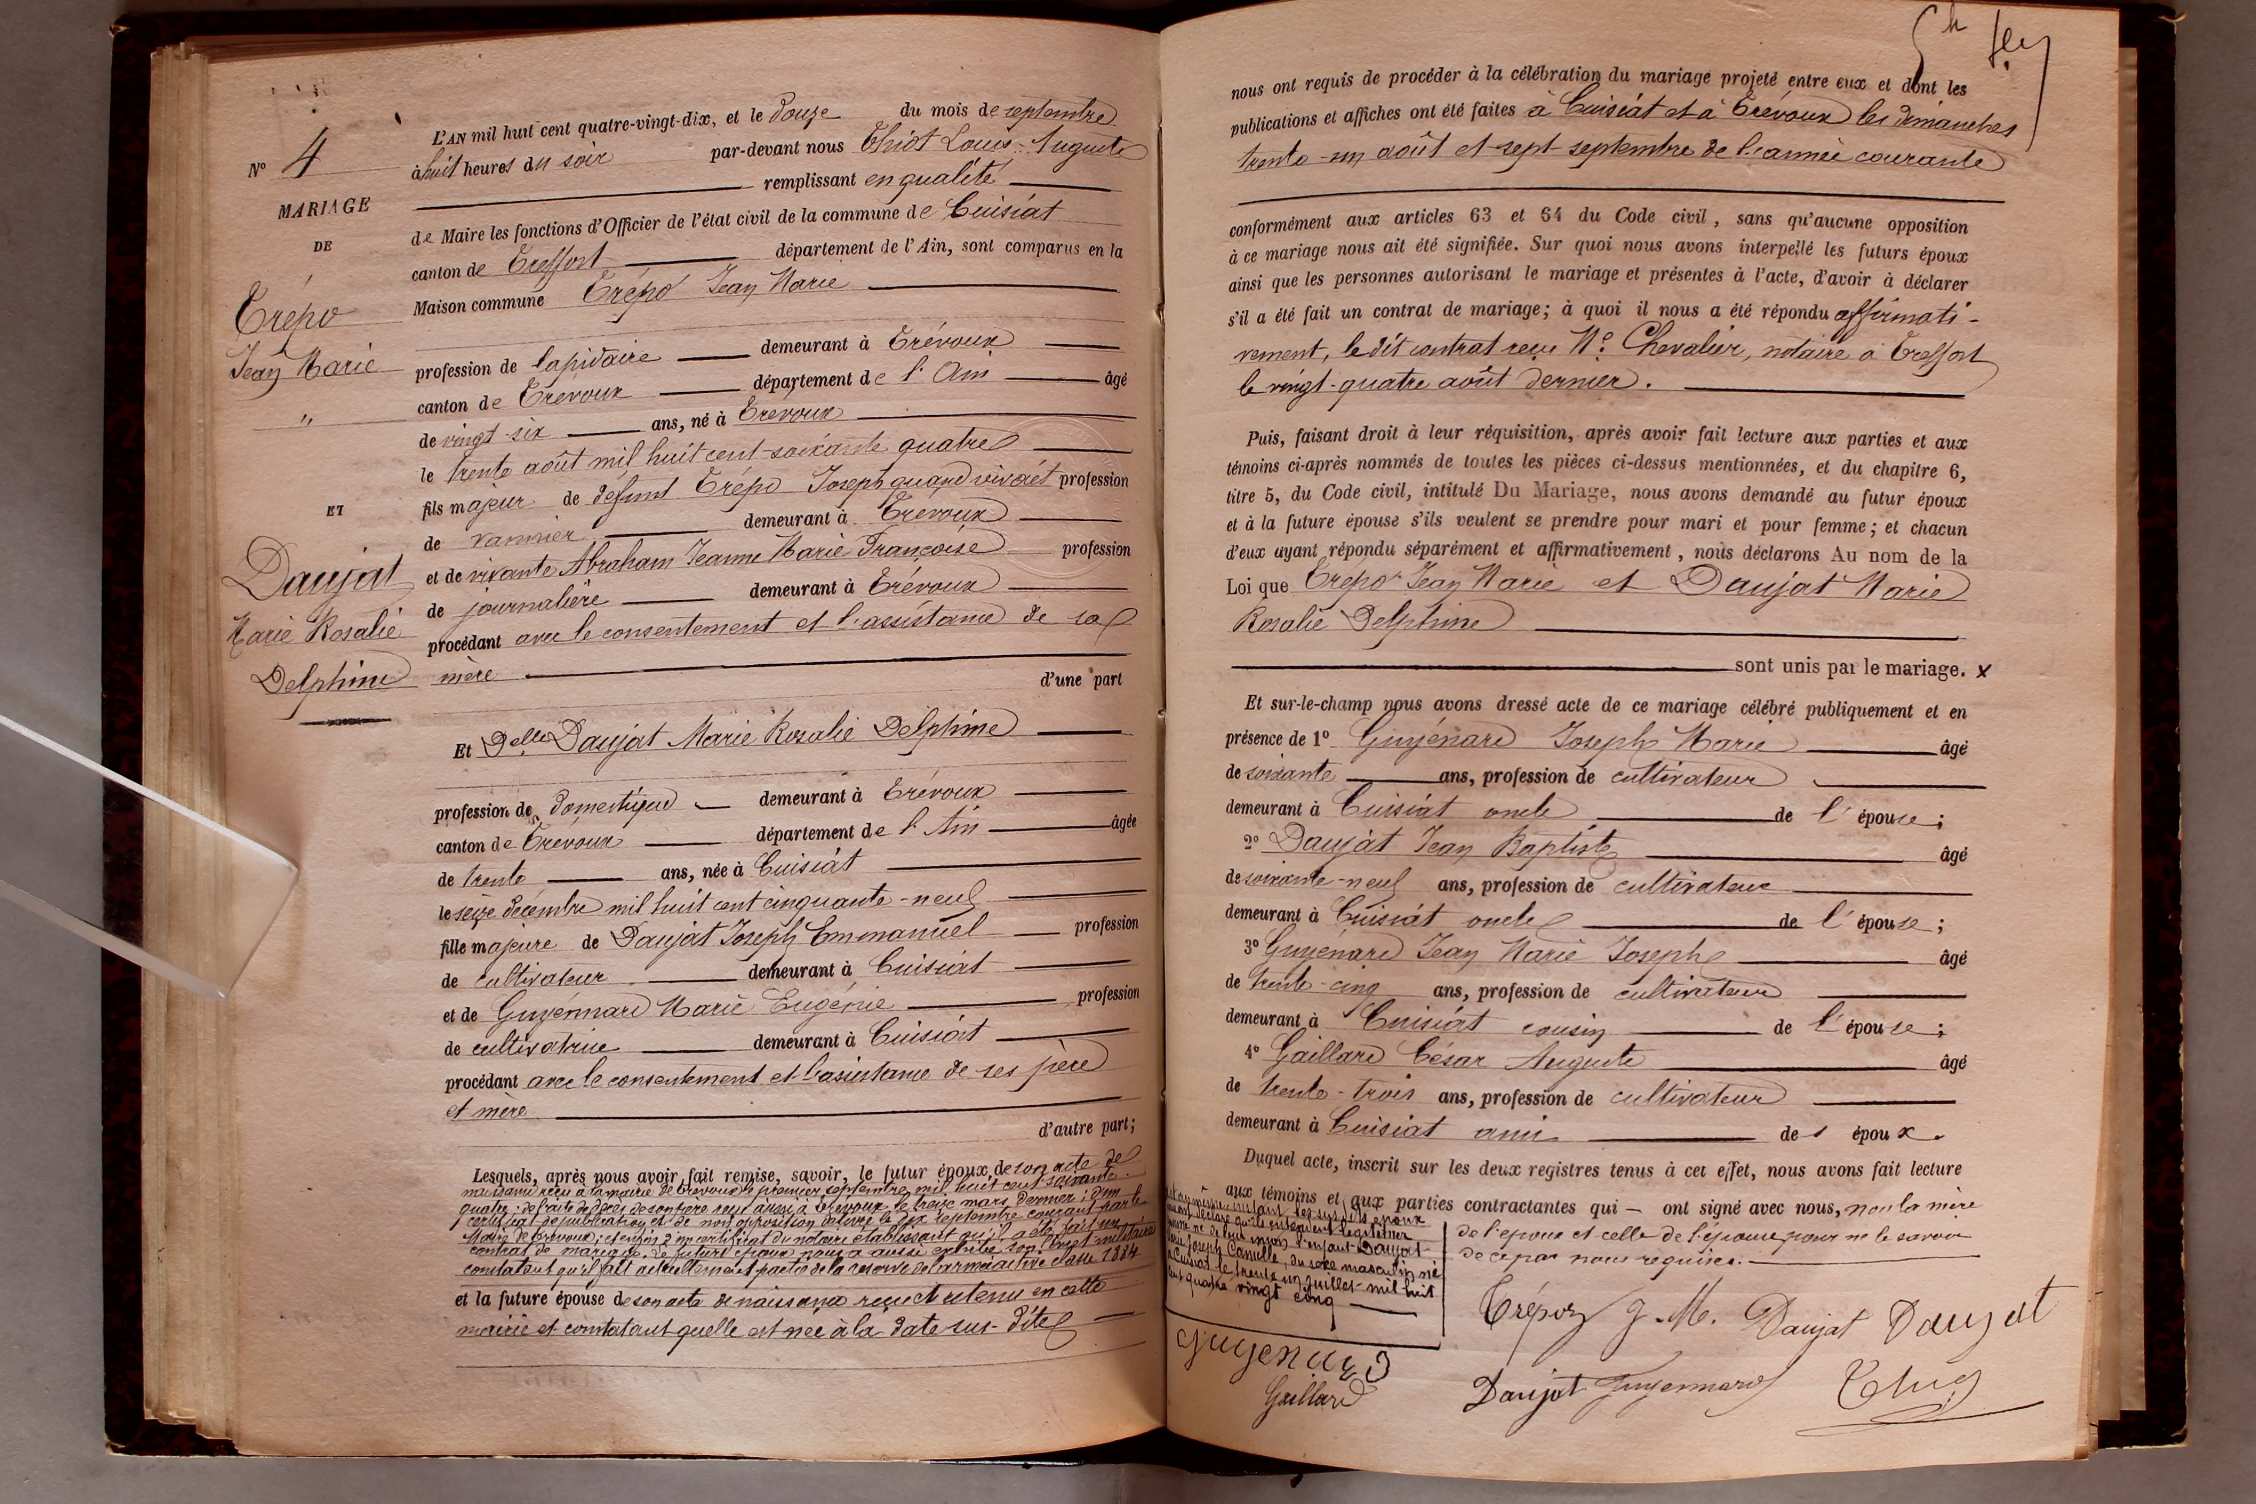 N° 4
MARIAGE
DE
Trépo
Jean Marie
"
ET
Daujat
Marie Rosalie
Delphine
L'AN mil huit cent quatre-vingt-dix, et le douze du mois de septembre
à huit heures du soir par-devant nous Thiot Louis Auguste
remplissant en qualité
de Maire les fonctions d'Officier de l'état civil de la commune de Cuisiat
canton de Treffort département de l'Ain, sont comparus en la
Maison commune Trépo Jean Marie
profession de lapidaire demeurant à Trévoux
canton de Trévoux département de l'Ain âgé
de vingt-six ans, né à Trévoux
le trente août mil huit cent soixante quatre
fils majeur de défunt Trépo Joseph quand vivait profession
de vannier demeurant à Trévoux
et de vivante Abraham Jeanne Marie Françoise profession
de journalière demeurant à Trévoux
procédant avec le consentement et l'assistance de sa
mère
d'une part
Et Delle Daujat Marie Rosalie Delphine
profession de domestique demeurant à Trévoux
canton de Trévoux département de l'Ain âgée
de trente ans, née à Cuisiat
le seize décembre mil huit cent cinquante-neuf
fille majeure de Daujat Joseph Emmanuel profession
de cultivateur demeurant à Cuisiat
et de Guyénnard Marie Eugénie profession
de cultivatrice demeurant à Cuisiat
procédant avec le consentement et l'assistance de ses père
et mère
d'autre part;
Lesquels, après nous avoir fait remise, savoir, le futur époux, de son acte de
naissance reçu à la mairie de Trévoux le premier septembre mil huit cent soixante
quatre; de l'acte de décès de son père reçu aussi à Trévoux le treize mars dernier; d'un
certificat de publication et de non opposition délivré le dix septembre courant par le
Maire de Trévoux; et enfin d'un certificat du notaire établissant qu'il a été fait un
contrat de mariage. Le futur époux nous a aussi exhibé son livret militaire
constatant qu'il fait actuellement partie de la réserve de l'armée active classe 1884
et la future épouse de son acte de naissance reçu et retenu en cette
mairie et constatant quelle est née à la date sus-dite
nous ont requis de procéder à la célébration du mariage projeté entre eux et dont les
publications et affiches ont été faites à Cuisiat et à Trévoux les dimanches
trente-un août et sept septembre de l'année courante
conformément aux articles 63 et 64 du Code civil, sans qu'aucune opposition
à ce mariage nous ait été signifiée. Sur quoi nous avons interpellé les futurs époux
ainsi que les personnes autorisant le mariage et présentes à l'acte, d'avoir à déclarer
s'il a été fait un contrat de mariage; à quoi il nous a été répondu affirmati-
vement, le dit contrat reçu Me Chevalier, notaire à Treffort
le vingt-quatre août dernier.
Puis, faisant droit à leur réquisition, après avoir fait lecture aux parties et aux
témoins ci-après nommés de toutes les pièces ci-dessus mentionnées, et du chapitre 6,
titre 5, du Code civil, intitulé Du Mariage, nous avons demandé au futur époux
et à la future épouse s'ils veulent se prendre pour mari et pour femme; et chacun
d'eux ayant répondu séparément et affirmativement, nous déclarons Au nom de la
Loi que Trépo Jean Marie et Daujat Marie
Rosalie Delphine
sont unis par le mariage. x
Et sur-le-champ nous avons dressé acte de ce mariage célébré publiquement et en
présence de 1° Guyénard Joseph Marie âgé
de soixante ans, profession de cultivateur
demeurant à Cuisiat oncle de l'épouse;
2° Daujat Jean Baptiste âgé
de soixante-neuf ans, profession de cultivateur
demeurant à Cuisiat oncle de l'épouse;
3° Guyénard Jean Marie Joseph âgé
de trente-cinq ans, profession de cultivateur
demeurant à Cuisiat cousin de l'épouse;
4° Gaillard César Auguste âgé
de trente-trois ans, profession de cultivateur
demeurant à Cuisiat ami des époux.
Duquel acte, inscrit sur les deux registres tenus à cet effet, nous avons fait lecture
aux témoins et aux parties contractantes qui ont signé avec nous, non la mère
de l'époux et celle de l'épouse pour ne le savoir
de ce par nous requises.
instant les sus dits époux
déclaré qu'ils entendent légitimer
né de leur union l'enfant Daujat
Joseph Camille, du sexe masculin né
à Cuisiat le trente un juillet mil huit
cent quatre vingt cinq
Trépoz J. M. Daujat Daujat
Guyenard
Gaillard
Daujat Guyennard Thiot